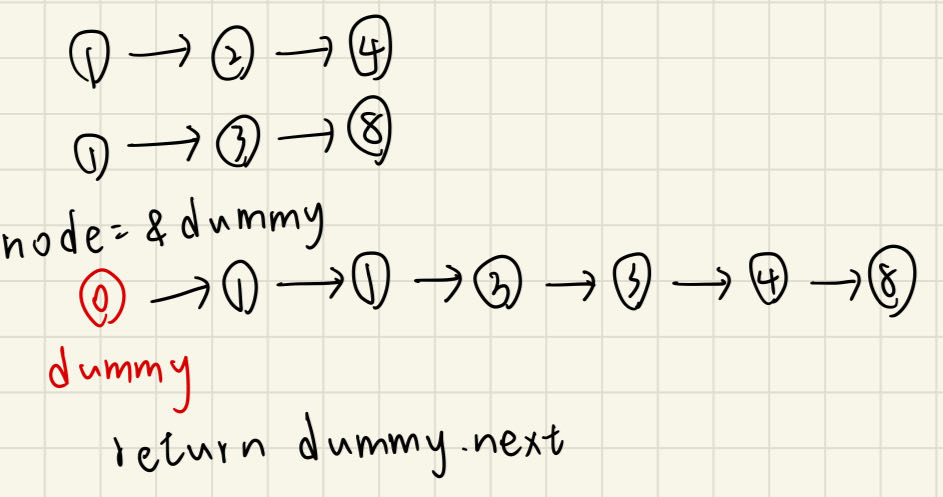 1 → 2 → 4
1 → 3 → 8
node = &dummy
0 → 1 → 1 → 3 → 3 → 4 → 8
dummy
return dummy.next